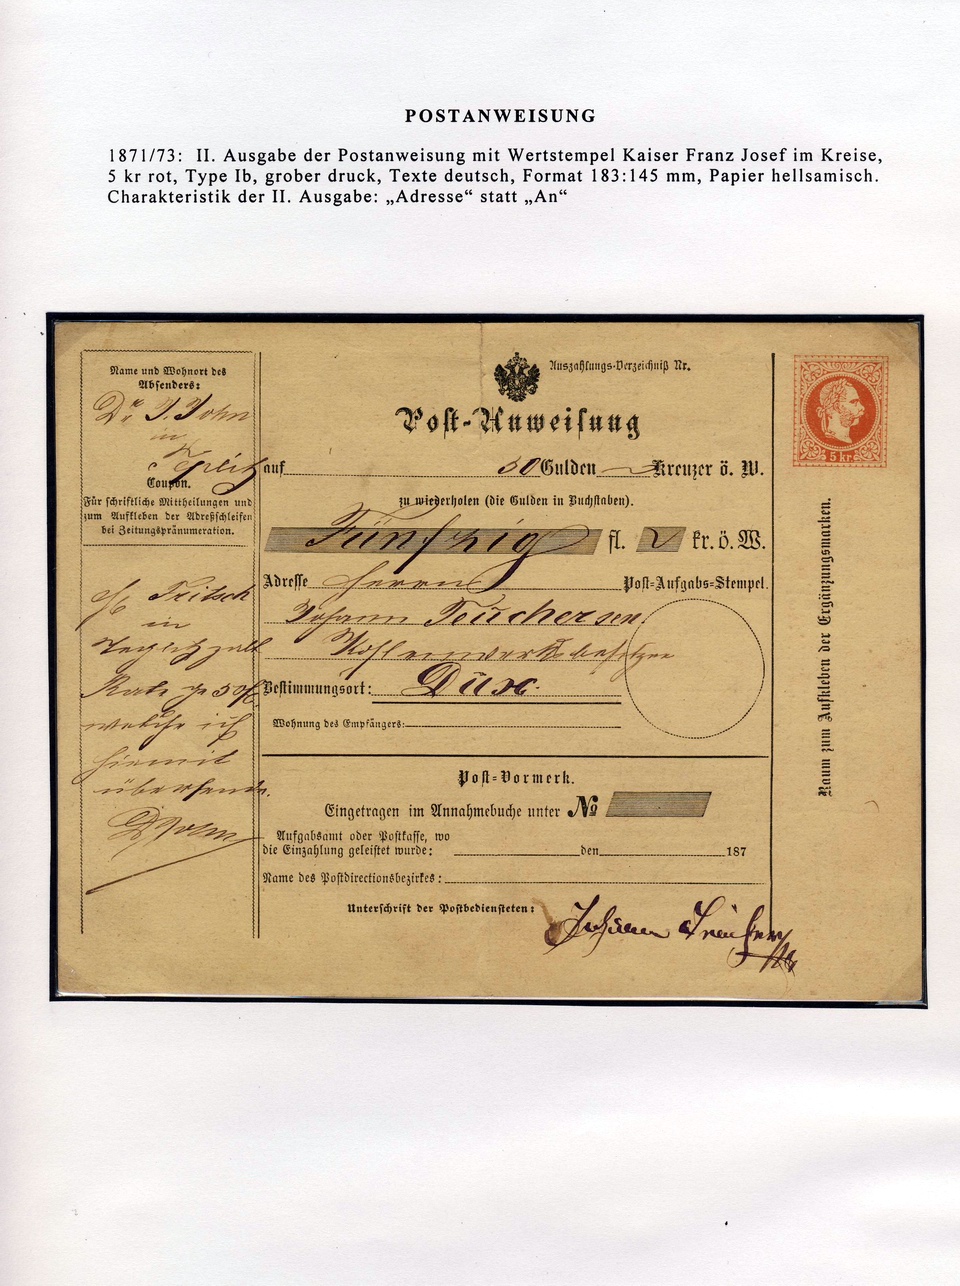 POSTANWEISUNG
1871/73: II. Ausgabe der Postanweisung mit Wertstempel Kaiser Franz Josef im Kreise,
5 kr rot, Type Ib, grober druck, Texte deutsch, Format 183:145 mm, Papier hellsamisch.
Charakteristik der II. Ausgabe: „Adresse“ statt „An“
Name und Wohnort des
Absenders:
Dr. J. John
in
Coupon.
Für schriftliche Mittheilungen und
zum Aufkleben der Adreßschleifen
bei Zeitungspränumeration.
Fritsch
in
Rate pr 50 fl.
welche ich
hiemit
übersende.
DJohn
Auszahlungs-Verzeichniß Nr.
Post-Anweisung
auf 50 Gulden Kreuzer ö. W.
zu wiederholen (die Gulden in Buchstaben).
Fünfzig fl. kr. ö. W.
Adresse Herrn Post-Aufgabs-Stempel.
Johann Teuchersen.
Kohlenwerksbesitzer
Bestimmungsort: Dux.
Wohnung des Empfängers:
Post-Vormerk.
Eingetragen im Annahmebuche unter No
Aufgabsamt oder Postkasse, wo
die Einzahlung geleistet wurde: den 187
Name des Postdirectionsbezirkes:
Unterschrift der Postbediensteten:
Johann
5 kr.
Raum zum Aufkleben der Ergänzungsmarken.